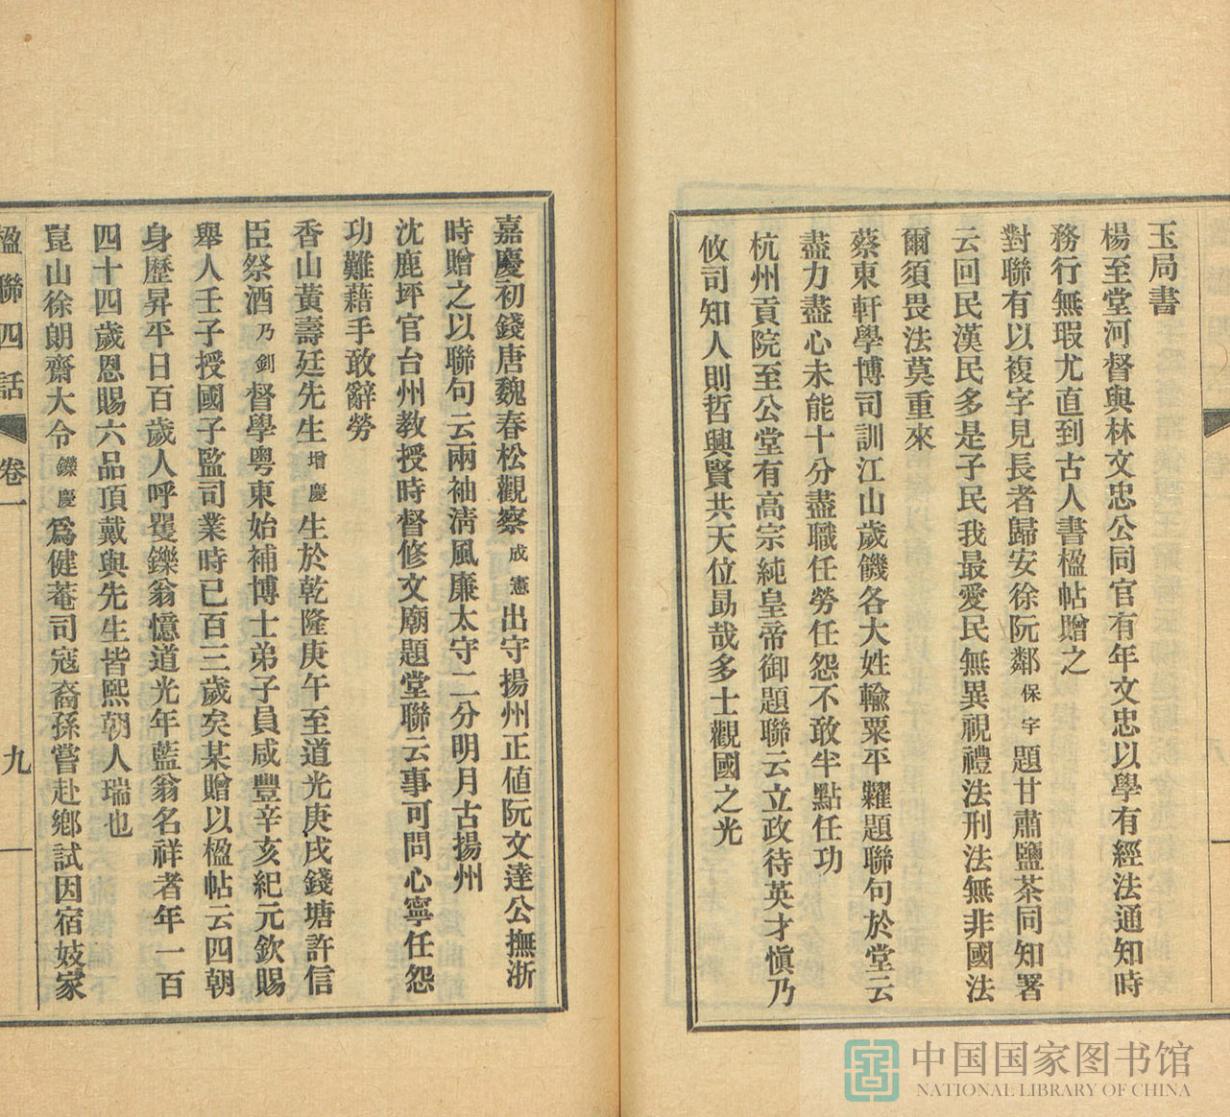 玉局書
楊至堂河督與林文忠公同官有年文忠以學有經法通知時
務行無瑕尤直到古人書楹帖贈之
對聯有以複字見長者歸安徐阮鄰保字題甘肅鹽茶同知署
云回民漢民多是子民我最愛民無異視禮法刑法無非國法
爾須畏法莫重來
蔡東軒學博司訓江山歲饑各大姓輸粟平糶題聯句於堂云
盡力盡心未能十分盡職任勞任怨不敢半點任功
杭州貢院至公堂有高宗純皇帝御題聯云立政待英才愼乃
攸司知人則哲興賢共天位勗哉多士觀國之光
嘉慶初錢唐魏春松觀察成憲出守揚州正値阮文達公撫浙
時贈之以聯句云兩袖淸風廉太守二分明月古揚州
沈鹿坪官台州教授時督修文廟題堂聯云事可問心寧任怨
功難藉手敢辭勞
香山黃壽廷先生增慶生於乾隆庚午至道光庚戌錢塘許信
臣祭酒乃釗督學粵東始補博士弟子員咸豐辛亥紀元欽賜
舉人壬子授國子監司業時已百三歲矣某贈以楹帖云四朝
身歷昇平日百歲人呼矍鑠翁憶道光年藍翁名祥者年一百
四十四歲恩賜六品頂戴與先生皆熙朝人瑞也
崑山徐朗齋大令鑠慶爲健菴司寇裔孫嘗赴鄉試因宿妓家
楹聯四話 卷一 九
中国国家图书馆
NATIONAL LIBRARY OF CHINA